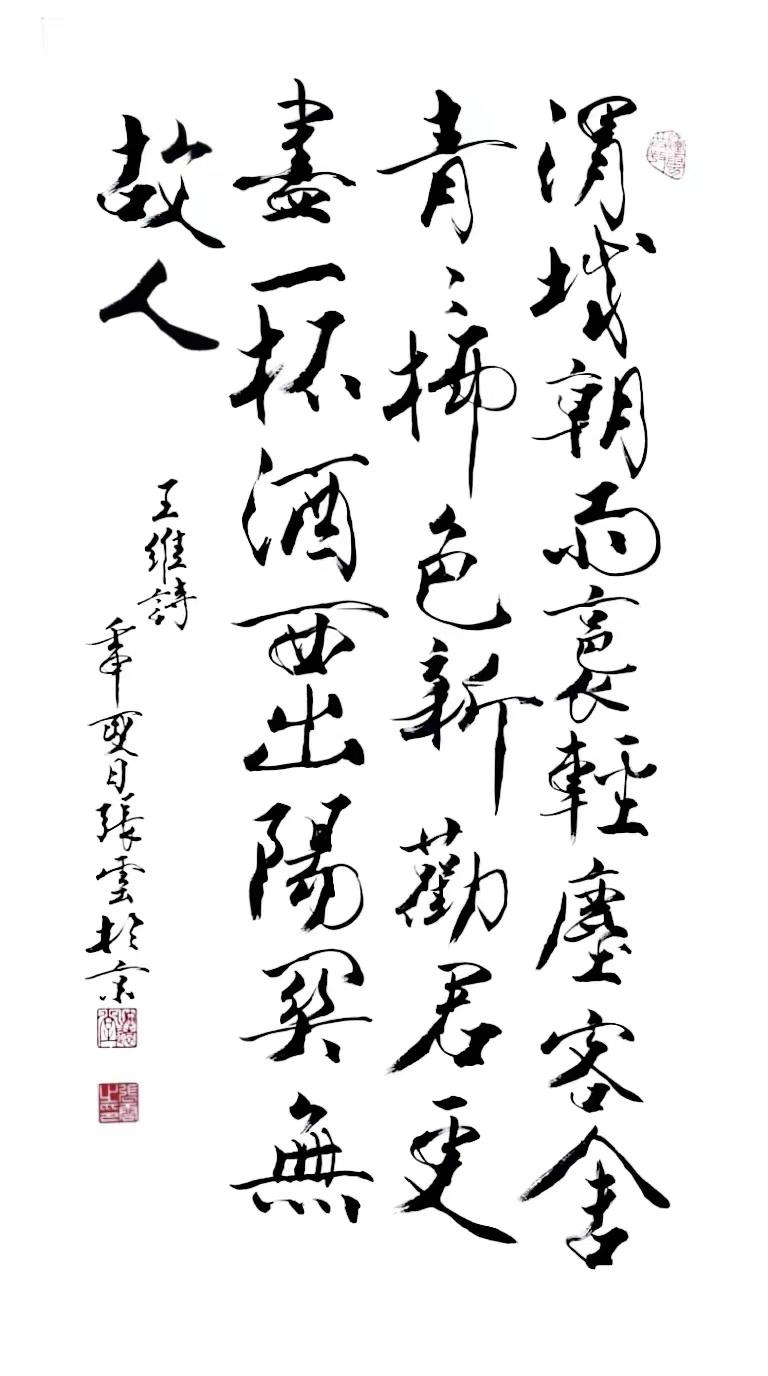 渭城朝雨裛輕塵客舍
青〻柳色新勸君更
盡一杯酒西出陽關無
故人
王維詩
夏日張雲於京